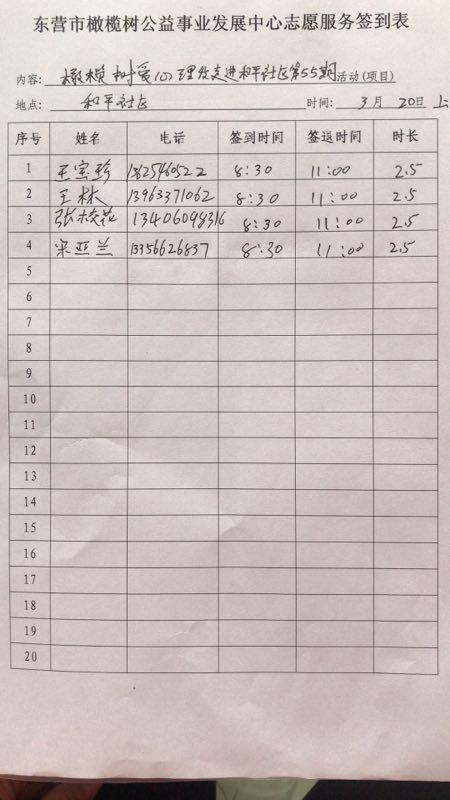 东营市橄榄树公益事业发展中心志愿服务签到表
内容: 橄榄树爱心理发走进和平社区第55期活动(项目)
地点: 和平社区 时间: 3月 20日 上
序号 姓名 电话 签到时间 签退时间 时长
1 王宝珍 13625460522 8:30 11:00 2.5
2 王林 13963371062 8:30 11:00 2.5
3 张校花 13406098316 8:30 11:00 2.5
4 宋亚兰 13356626837 8:30 11:00 2.5
5
6
7
8
9
10
11
12
13
14
15
16
17
18
19
20